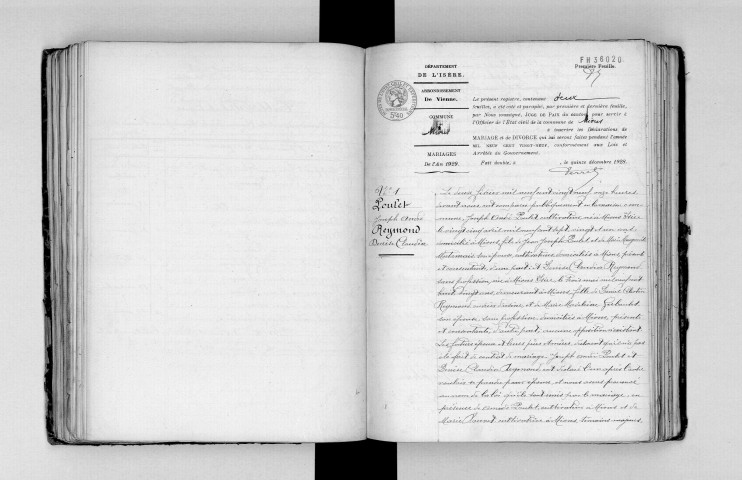 FH36020
DÉPARTEMENT
DE L'ISÈRE.
Première Feuille.
ARRONDISSEMENT
De Vienne.
COMMUNE
Mions
MARIAGES
De l'An 1929.
5f40
Le présent registre, contenant deux
feuilles, a été coté et paraphé, par première et dernière feuille,
par Nous soussigné, JUGE DE PAIX du canton, pour servir à
l'Officier de l'État civil de la commune de Mions
à inscrire les Déclarations de
MARIAGE et de DIVORCE qui lui seront faites pendant l'année
MIL NEUF CENT VINGT-NEUF, conformément aux Lois et
Arrêtés du Gouvernement.
Fait double, à , le quinze décembre 1928.
N° 1
Poulet
Joseph André
Reymond
Denise Claudia
Le deux février mil neuf cent vingt neuf onze heures
devant nous ont comparu publiquement en la maison com
mune, Joseph André Poulet cultivateur né à Mions Isère
le vingt cinq avril mil neuf cent sept, vingt et un ans
domicilié à Mions, fils de Jean Joseph Poulet et de Marie
son épouse, cultivateurs, domiciliés à Mions présents
et consentants, d'une part, et Denise Claudia Reymond
sans profession, née à Mions Isère, le trois mai mil neuf cent
vingt ans, demeurant à Mions, fille de Louis
Reymond et de Marie
son épouse, sans profession domiciliés à Mions, présents
et consentants, d'autre part, aucune opposition n'existant
Les futurs époux et leurs père et mère, déclarent qu'il n'a pas
été fait de contrat de mariage. Joseph André Poulet et
Denise Claudia Reymond ont déclaré l'un après l'autre
vouloir se prendre pour époux, et nous avons prononcé
au nom de la loi qu'ils sont unis par le mariage, en
présence de Poulet, cultivateur à Mions et de
Marie cultivatrice à Mions, témoins majeurs